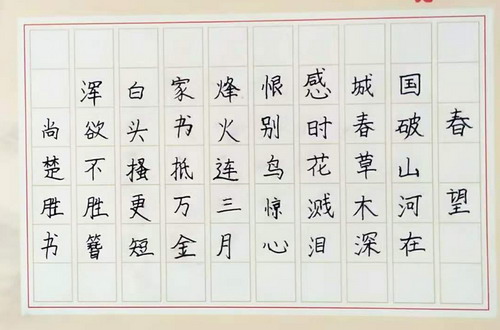 春望
国破山河在
城春草木深
感时花溅泪
恨别鸟惊心
烽火连三月
家书抵万金
白头搔更短
浑欲不胜簪
尚楚胜书